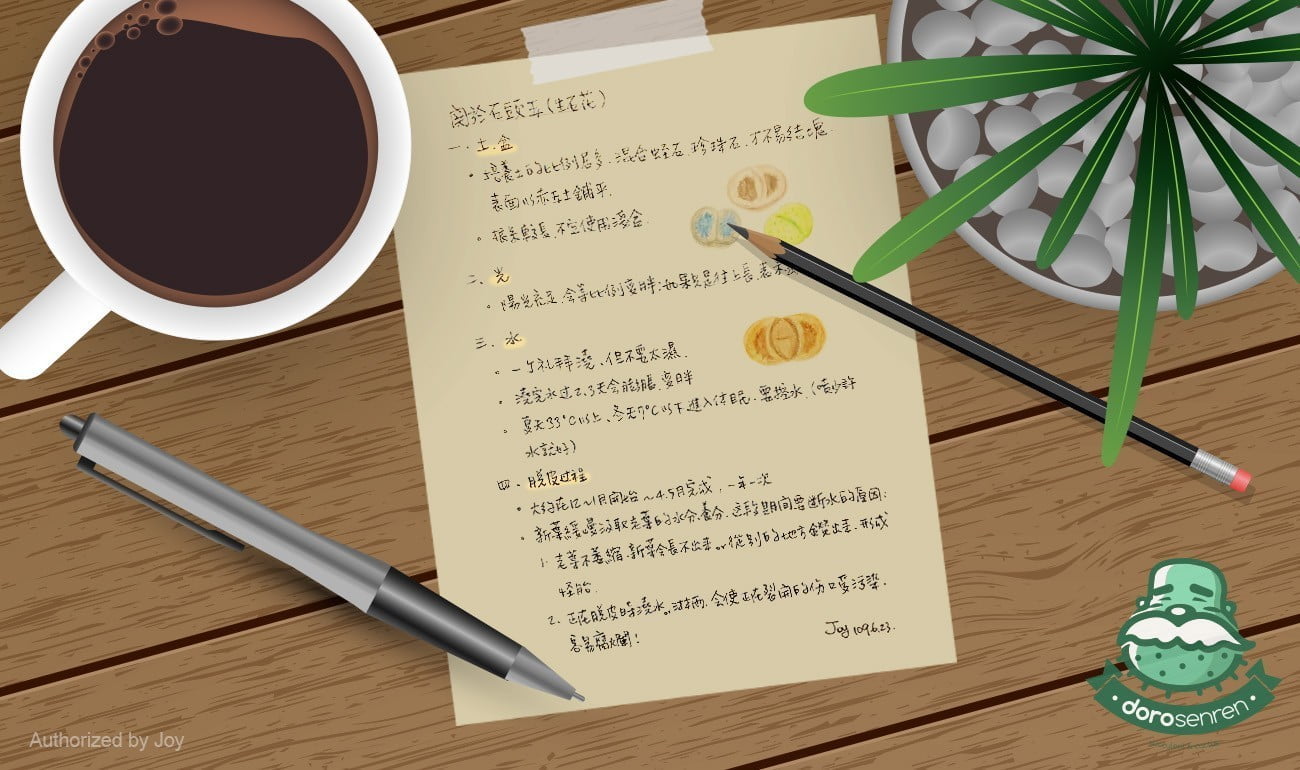 關於石頭玉(生石花)
一. 土.盆
• 培養土的比例居多.混合蛭石.珍珠石.才不易結塊.
表面以赤玉土鋪平.
• 根系較長.不宜使用淺盆.
二. 光
• 陽光充足.會等比例變胖;如果只是往上長.表示
三. 水
• 一个礼拜澆、但不要太濕.
• 澆完水过2.3天会膨脹.变胖
• 夏天33°C以上、冬天7°C以下進入休眠.要控水.(噴少許
水就好)
四. 脫皮过程
• 大約在12~1月開始~4.5月完成,一年一次
• 新葉緩慢汲取老葉的水分.養分.这段期间要断水的原因:
1. 老葉不萎縮.新葉会長不出来.or從別的地方鑽出来.形成
怪胎.
2. 正在脫皮時澆水.or淋雨.会使正在裂開的伤口受污染.
容易腐爛!
Joy 109.6.23.
dorosenren
Authorized by Joy